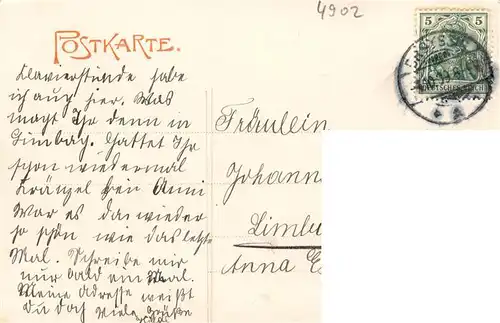 4902
POSTKARTE.
5 5
DEUTSCHES REICH
Klavierstunde habe
ich auch hier. Was
macht Ihr denn in
Limburg. Hattet Ihr
schon wiedermal
Kränzel bei Anni
War es da wieder
so schön wie das letzte
Mal. Schreibe mir
nur bald ein Mal.
Meine Adresse weißt
Du doch viele Grüße
Fräulein
Johann
Limbu
Anna